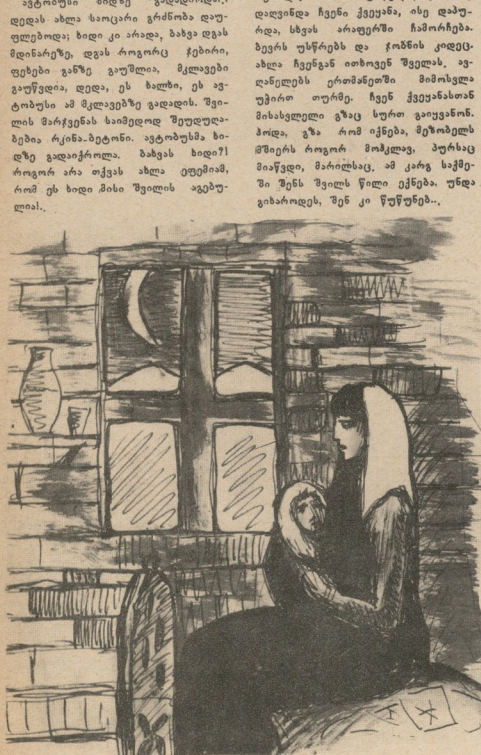 დედას ახლა საოცარი გრძნობა დაუ-
ფლებოდა; ხიდი კი არადა, ბახვა დგას
მდინარეზე, დგას როგორც ჯებირი,
ფეხები განზე გაუშლია, მკლავები
გაუწვდია, დედა, ეს ხალხი, ეს ავ-
ტობუსი ამ მკლავებზე გადადის. შვი-
ლის მარჯვენას საიმედოდ შეუდუღა-
ბებია რკინა-ბეტონი. ავტობუსმა ხი-
დზე გადაიქროლა. ბახვას ხიდი?!
როგორ არა თქვას ახლა ეფემიამ,
რომ ეს ხიდი მისი შვილის აგებუ-
ლია!..
დაღვინდა ჩვენი ქვეყანა, ისე დაპუ-
რდა, სხვას არაფერში ჩამორჩება.
ბევრს უსწრებს და ჯობნის კიდეც.
ახლა ჩვენგან ითხოვენ შველას, ავ-
ღანელებს ერთმანეთში მიმოსვლა
უჭირთ თურმე. ჩვენ ქვეყანასთან
მისასვლელი გზაც სურთ გაიყვანონ.
ჰოდა, გზა რომ იქნება, მეზობელს
მშიერს როგორ მოჰკლავ, პურსაც
მიაწვდი, მარილსაც. ამ კარგ საქმე-
ში შენს შვილს წილი ექნება. უნდა
გიხაროდეს, შენ კი წუწუნებ...